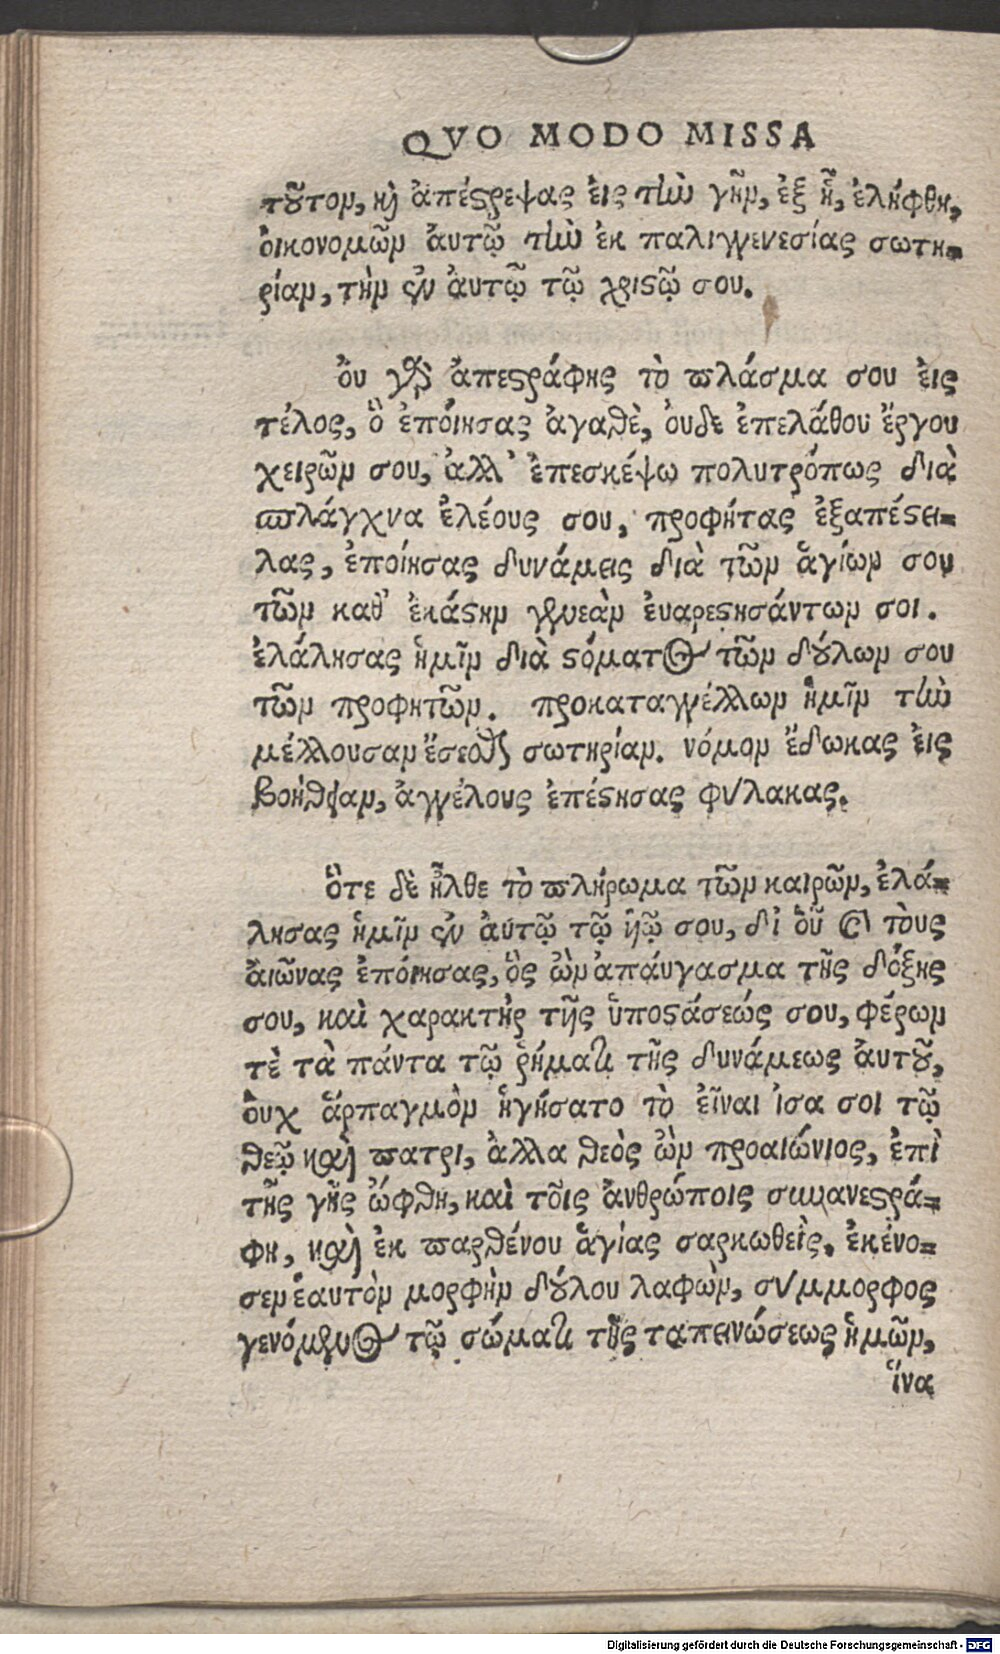 QVO MODO MISSA
τοῦτομ, καὶ ἀπέστρεψας ἐις τὴν γῆμ, ἐξ ἧ, ἐλήφθη,
ὀικονομῶμ ἀυτῷ τὴν ἐκ παλιγγενεσίας σωτη=
ρίαμ, τὴμ ἐν ἀυτῷ τῷ χριστῷ σου.
Ὀυ γὰρ ἀπεστράφης τὸ πλάσμα σου ἐις
τέλος, ὃ ἐπόιησας ἀγαθὲ, ὀυδε ἐπελάθου ἔργου
χειρῶμ σου, ἀλλ' ἐπεσκέψω πολυτρόπως διὰ
σπλάγχνα ἐλέους σου, προφήτας ἐξαπέστει=
λας, ἐποίησας δυνάμεις διὰ τῶμ ἁγίωμ σου
τῶμ καθ' ἑκάστημ γενεὰμ ἐυαρεστησάντωμ σοι.
ἐλάλησας ἡμῖμ διὰ στόματος τῶμ δούλωμ σου
τῶμ προφητῶμ. προκαταγγέλλωμ ἡμῖμ τὴν
μέλλουσαμ ἔσεσθαι σωτηρίαμ. νόμομ ἔδωκας ἐις
βοήθειαμ, ἀγγέλους ἐπέστησας φύλακας.
Ὅτε δὲ ἦλθε τὸ πλήρωμα τῶμ καιρῶμ, ἐλά=
λησας ἡμῖμ ἐν ἀυτῷ τῷ ὑιῷ σου, δἰ ὃῦ καὶ τὸυς
ἀιῶνας ἐπόιησας, ὃς ὢμ ἀπάυγασμα τῆς δόξης
σου, καὶ χαρακτὴρ τῆς ὑποστάσεώς σου, φέρωμ
τὲ τὰ πάντα τῷ ῥήματι τῆς δυνάμεως ἀυτοῦ,
ὀυχ ἅρπαγμὸμ ἡγήσατο τὸ ἐῖναι ἰσα σοι τῷ
θεῷ καὶ πατρι, ἀλλα θεὸς ὢμ προαιώνιος, ἐπὶ
τῆς γῆς ὤφθη, καὶ τοῖς ἀνθρώποις συνανεστρά=
φη, καὶ ἐκ παρθένου ἁγίας σαρκωθεὶς, ἐκένο=
σεμ ἑαυτὸμ μορφὴμ δούλου λαφὼμ, σύμμορφος
γενόμενος τῷ σώματι τῆς ταπεινώσεως ἡμῶμ,
ἵνα
Digitalisierung gefördert durch die Deutsche Forschungsgemeinschaft - DFG